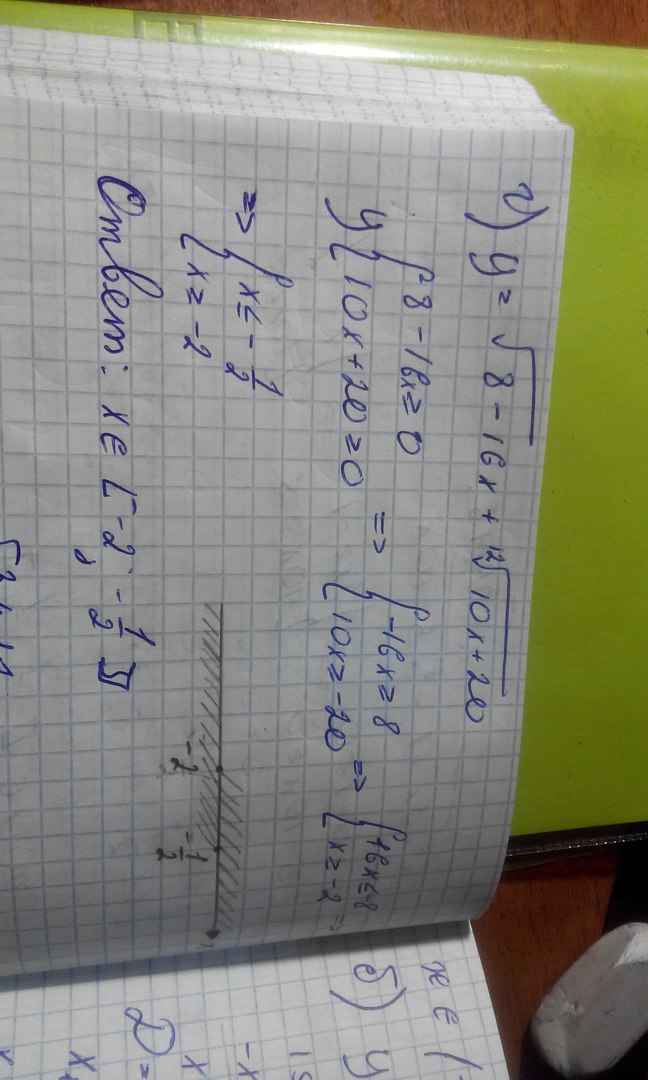 г) y = √8 - 16x + ¹²√10x + 20
y { -8 - 16x ≥ 0 => { -16x ≥ 8 => { +16x ≤ -8
{ 10x + 20 ≥ 0 { 10x ≥ -20 { x ≥ -2 =>
=> { x ≤ - 1/2
{ x ≥ -2
-2 - 1/2
Ответ: x ∈ [-2; - 1/2]
x ∈ [-
б) y
D =
-x
x